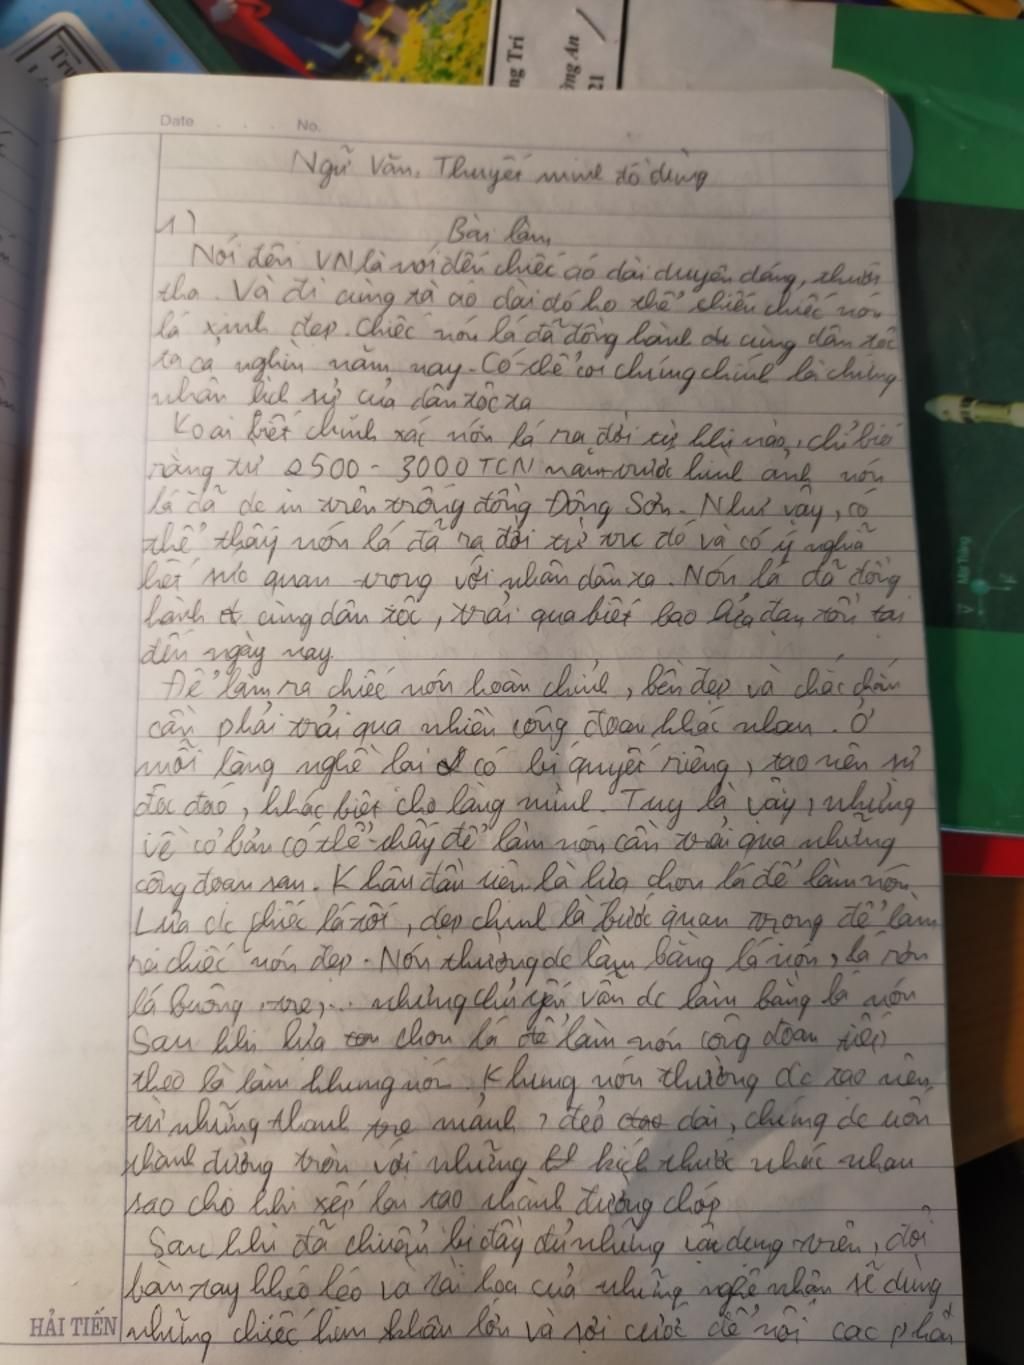 Trí
An
21
Date . . . No.
Ngữ Văn. Thuyết minh đồ dùng
1)
Bài làm
Nói đến VN là nói đến chiếc áo dài duyên dáng, thướt
tha. Và đi cùng tà áo dài đó ko thể thiếu chiếc nón
lá xinh đẹp. Chiếc nón lá đã đồng hành cùng dân tộc
ta cả nghìn năm nay. Có thể coi chúng chính là chứng
nhân lịch sử của dân tộc ta
Ko ai biết chính xác nón lá ra đời từ khi nào, chỉ biết
rằng từ 2500 - 3000 TCN năm trước hình ảnh nón
lá đã đc in trên trống đồng Đông Sơn. Như vậy, có
thể thấy nón lá đã ra đời từ trc đó và có ý nghĩa
hết sức quan trọng với nhân dân ta. Nón lá đã đồng
hành cùng dân tộc, trải qua biết bao lửa đạn tồn tại
đến ngày nay.
Để làm ra chiếc nón hoàn chỉnh, bền đẹp và chắc chắn
cần phải trải qua nhiều công đoạn khác nhau. Ở
mỗi làng nghề lại có bí quyết riêng, tạo nên sự
độc đáo, khác biệt cho làng mình. Tuy là vậy, nhưng
về cơ bản có thể thấy để làm nón cần trải qua những
công đoạn sau. Khâu đầu tiên là lựa chọn lá để làm nón.
Lựa đc chiếc lá tốt, đẹp chính là bước quan trọng để làm
ra chiếc nón đẹp. Nón thường đc làm bằng lá nón, lá cọ
lá buông, tre,... nhưng chủ yếu vẫn đc làm bằng lá nón
Sau khi lựa chọn lá để làm nón công đoạn tiếp
theo là làm khung nón. Khung nón thường đc tạo nên
từ những thanh tre mảnh, dẻo dai, chúng đc uốn
thành đường tròn với những kích thước khác nhau
sao cho khi xếp lại tạo thành đường chóp
Sau khi đã chuẩn bị đầy đủ những vật dụng trên, đôi
bàn tay khéo léo và tài hoa của những nghệ nhân sẽ dùng
những chiếc kim khâu lớn và sợi cước để nối các phần
HẢI TIẾN